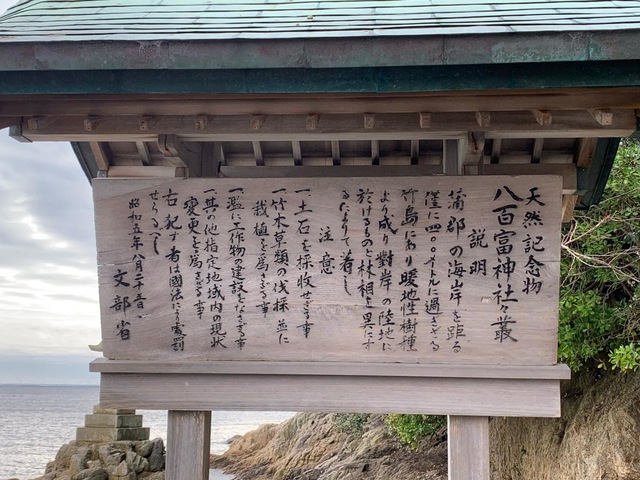 天然記念物
八百富神社々叢
説明
蒲郡の海岸を距る
僅に四〇〇メートルに過ぎざる
竹島にあり暖地性樹種
より成り對岸の陸地に
於けるものと林相を異にす
るによりて著し
注意
一土石を採収せざる事
一竹木草類の伐採並に
栽植を為さざる事
一濫に工作物建設をなさざる事
一其の他指定地域内の現状
変更を為さざる事
右犯す者は國法により處罰
せらるべし
昭和五年八月二十五日
文部省